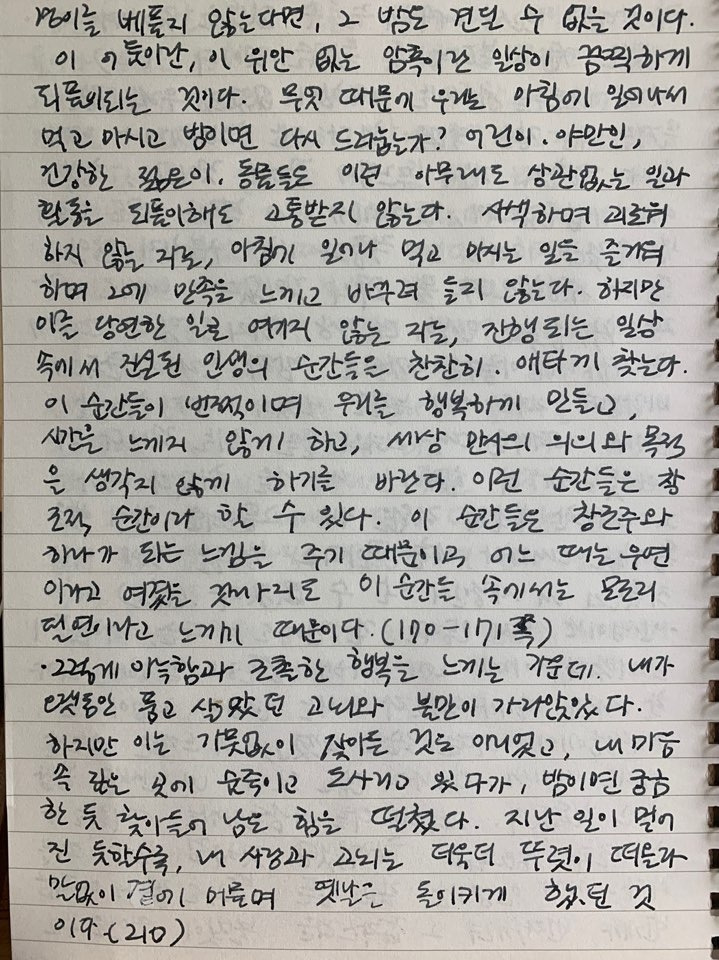 베풀지 않는다면, 그 밤도 견딜 수 없을 것이다.
이 어둡이난, 이 위안 없는 암흑이란 일상이 끔찍하게
되풀이되는 것이다. 무엇 때문에 우리는 아침에 일어나서
먹고 마시고 밤이면 다시 드러눕는가? 어린이. 야만인,
건강한 젊은이. 동물들도 이런 아무래도 상관없는 일과
활동을 되풀이해도 고통받지 않는다. 사색하며 괴로워
하지 않는 자는, 아침에 일어나 먹고 마시는 일을 즐거워
하며 그에 만족을 느끼고 바꾸려 들지 않는다. 하지만
이를 당연한 일로 여기지 않는 자는, 진행되는 일상
속에서 진실된 인생의 순간들은 찬찬히. 애타게 찾는다.
이 순간들이 번쩍이며 우리를 행복하게 만들고,
시간을 느끼지 않게 하고, 세상 만사의 의의와 목적
을 생각지 않게 하기를 바란다. 이런 순간들은 창
조적 순간이라 할 수 있다. 이 순간들은 창조주와
하나가 되는 느낌을 주기 때문이고, 어느 때는 우연
이라고 여겼을 것까지도 이 순간들 속에서는 모조리
필연이라고 느끼기 때문이다. (170-171쪽)
·그렇게 아늑함과 조촐한 행복을 느끼는 가운데. 내가
오랫동안 품고 살았던 고뇌와 불만이 가라앉았다.
하지만 이는 가뭇없이 잦아든 것은 아니었고, 내 마음
속 깊은 곳에 숨죽이고 도사리고 있다가, 밤이면 궁금
한 듯 찾아들어 남은 힘을 떨쳤다. 지난 일이 멀어
진 듯할수록, 내 사랑과 고뇌는 더욱더 뚜렷이 떠올라
말없이 곁에 머물며 옛날은 돌이키게 했던 것
이다. (210)